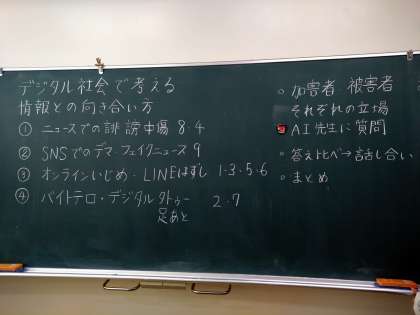 デジタル社会で考える
情報との向き合い方
① ニュースでの誹謗中傷 8・4
② SNSでのデマ・フェイクニュース 9
③ オンラインいじめ・LINEはずし 1・3・5・6
④ バイトテロ・デジタルタトゥー 2・7
足あと
。加害者・被害者
それぞれの立場
AI先生に質問
。答えトベ→話し合い
。まとめ